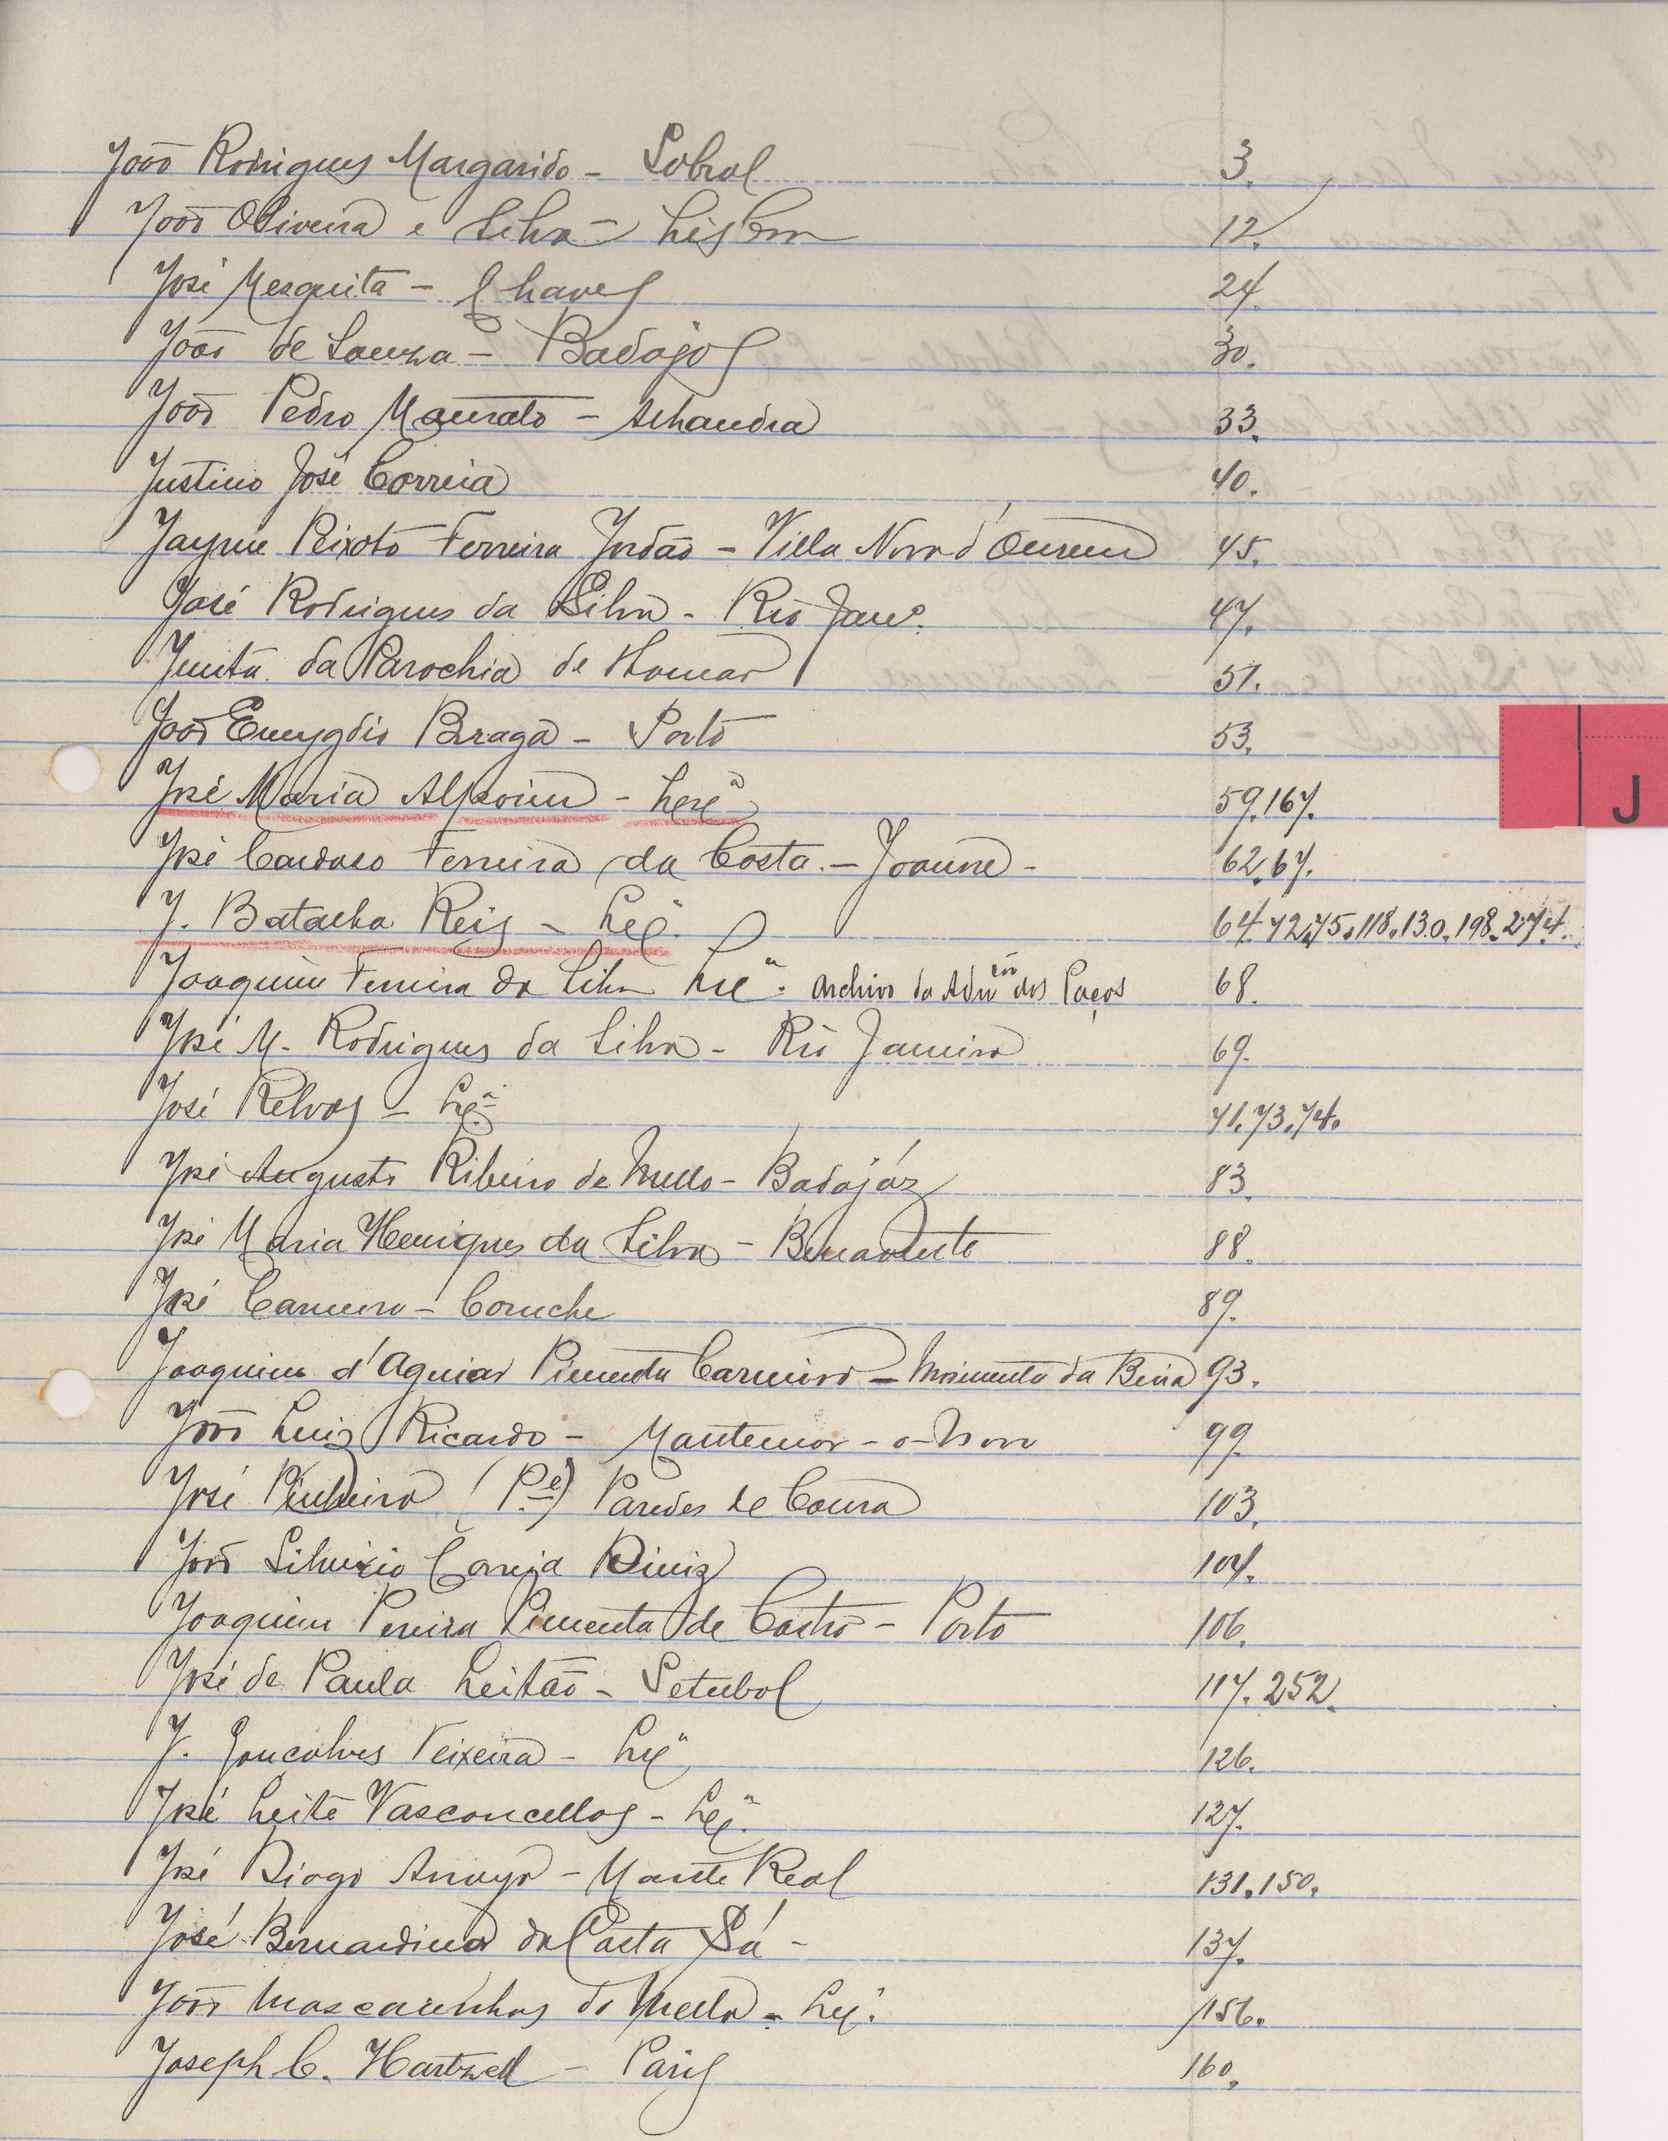 João Rodrigues Margarido - Sobral 3.
João Oliveira e Silva - Lisboa 12.
José Mesquita - Chaves 24.
João de Souza - Badajos 30.
João Pedro Mourato - Alhandra 33.
Justino José Correia 40.
Jayme Peixoto Ferreira Jordão - Villa Nova d'Ourem 45.
José Rodrigues da Silva - Rio Janº. 47.
Junta da Parochia de Thomar 51.
João Emygdio Braga - Porto 53.
José Maria Alpoim - Lxª 59.167.
José Cardoso Ferreira da Costa. - Joanne - 62.67.
J. Batalha Reis - Lxª. 64.72.75.118.130.198.274.
Joaquim Ferreira da Silva Lxª. Archivo da Admcão dos Paços 68.
José M. Rodrigues da Silva - Rio Janeiro 69.
José Relvas - Lxª 71.73.74.
José Augusto Ribeiro de Mello - Badajóz 83.
José Maria Henriques da Silva - Benavente 88.
José Carneiro - Coruche 89.
Joaquim d'Aguiar Pimenta Carneiro - Moimenta da Beira 93.
João Luiz Ricardo - Montemor-o-Novo 99.
José Pinheiro (P.e) Paredes de Coura 103.
João Silverio Correia Diniz 104.
Joaquim Pereira Pimenta de Castro - Porto 106.
José de Paula Leitão - Setubal 117. 252.
J. Gonçalves Teixeira - Lxª 126.
José Leite Vasconcellos - Lxª. 127.
José Diogo Arroyo - Monte Real 131.150.
José Bernardino da Costa Sá - 137.
João Mascarenhas de Mello - Lxª. 156.
Joseph C. Hartzell - Paris 160.
J